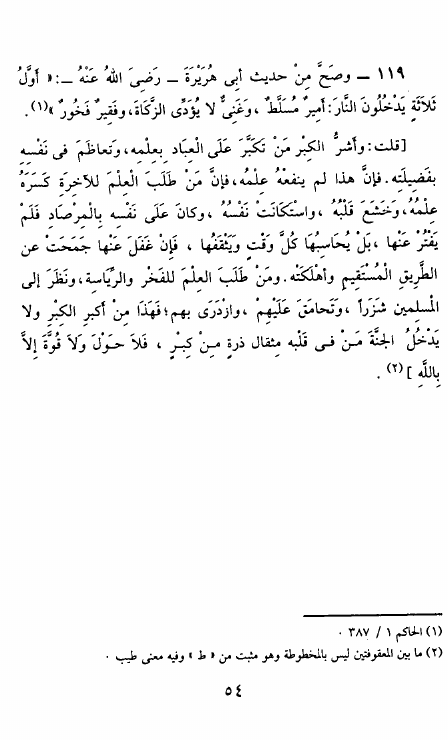 ١١٩ ــ وصَحَّ مِنْ حديث أبى هُرَيْرَةَ ــ رَضِىَ اللهُ عَنْهُ ــ: « أَوَّلُ
ثَلاَثَةٍ يَدْخُلُونَ النَّارَ: أَمِيرٌ مُسَلَّطٌ ، وَغَنِىٌّ لا يُؤَدِّى الزَّكَاةَ ، وَفَقِيرٌ فَخُورٌ »(١) .
[قلت : وأشرُّ الكِبْرِ مَنْ تَكَبَّرَ عَلَى الْعِبَادِ بِعِلْمِه ، وتَعاظَمَ فى نَفْسِهِ
بِفَضيلَتِه . فإنَّ هذا لم ينفعْهُ عِلْمُه ، فإنَّ مَنْ طَلَبَ العِلْمَ للآخِرةِ كَسَرَهُ
عِلْمُهُ ، وَخَشَعَ قَلْبُهُ ، واسْتَكَانَتْ نَفْسُهُ ، وكانَ عَلَى نَفْسِه بِالْمِرصَادِ فَلَمْ
يَفْتُرْ عَنْها ، بَلْ يُحَاسِبُهَا كُلَّ وَقْتٍ وَيَثْقَفُها ، فَإِنْ غَفَلَ عَنْها جَمَحَتْ عن
الطَّرِيقِ الْمُسْتَقِيمِ وأهْلَكَتْه . ومَنْ طَلَبَ العِلْمَ للفَخْرِ والرِّيَاسةِ ، ونَظَرَ إلى
الْمُسلمين شَزَراً ، وَتَحامَقَ عَلَيْهِمْ ، وازْدَرَى بهم ؛ فَهَذَا مِنْ أكبرِ الكِبْرِ ولا
يَدْخُلُ الجنَّةَ مَـنْ فـى قلْبه مثقال ذرةٍ مِـنْ كِبْـرٍ ، فَلاَ حَـوْلَ وَلاَ قُـوَّةَ إلاَّ
بِاللَّهِ ](٢) .
(١) الحاكم ١ / ٣٨٧ .
(٢) ما بين المعقوفتين ليس بالمخطوطة وهو مثبت من « ط » وفيه معنى طيب .
٥٤